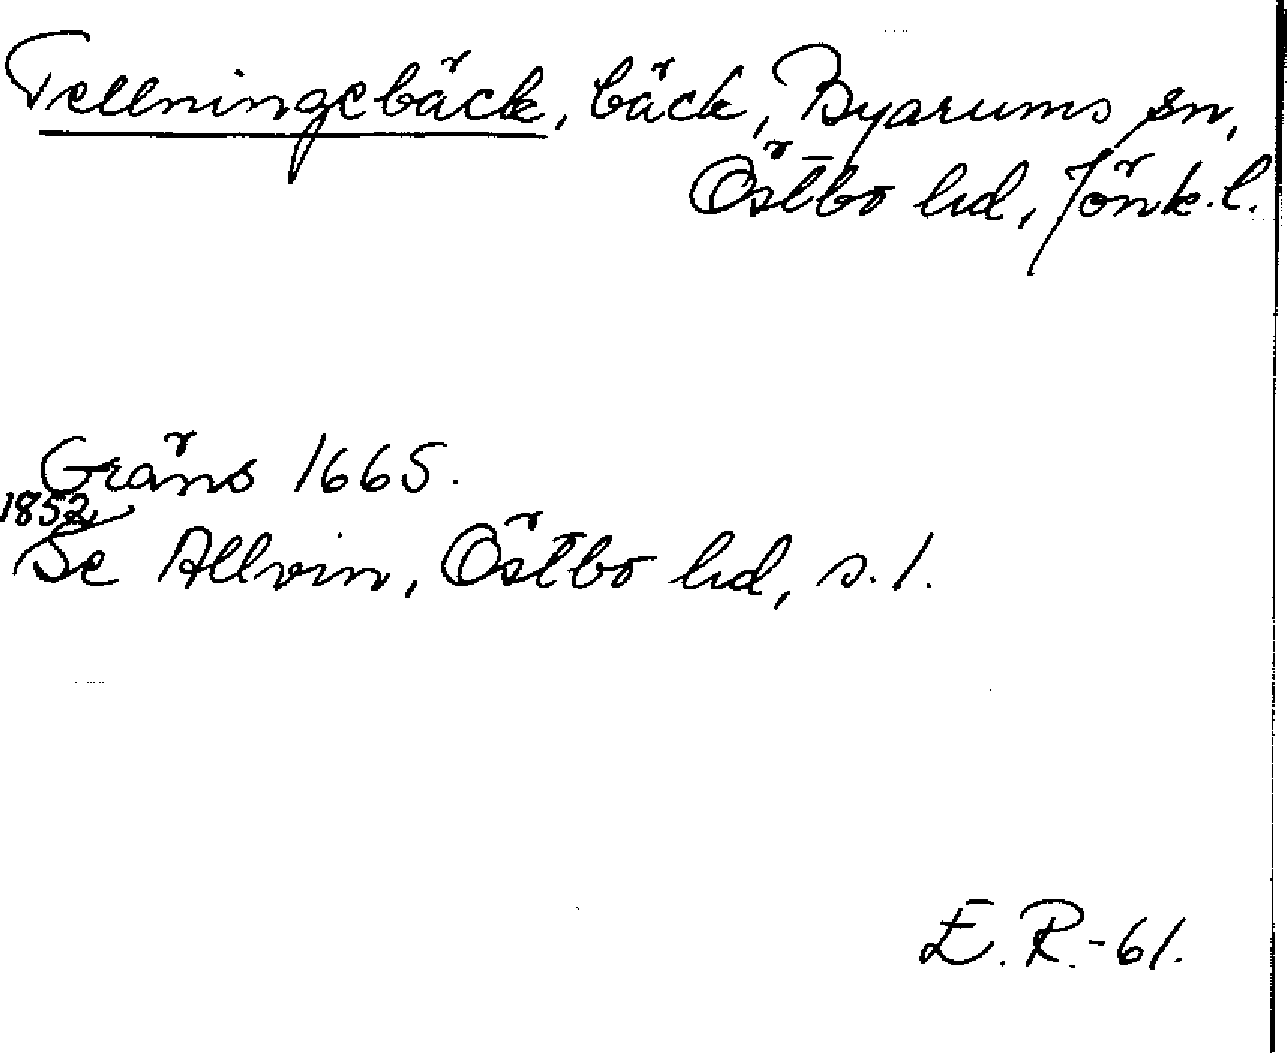 Tellningebäck, bäck, Byarums sn,
Östbo hd, Jönk.l.
Gräns 1665.
1852,
Se Allvin, Östbo hd, s. 1.
E. R. -61.